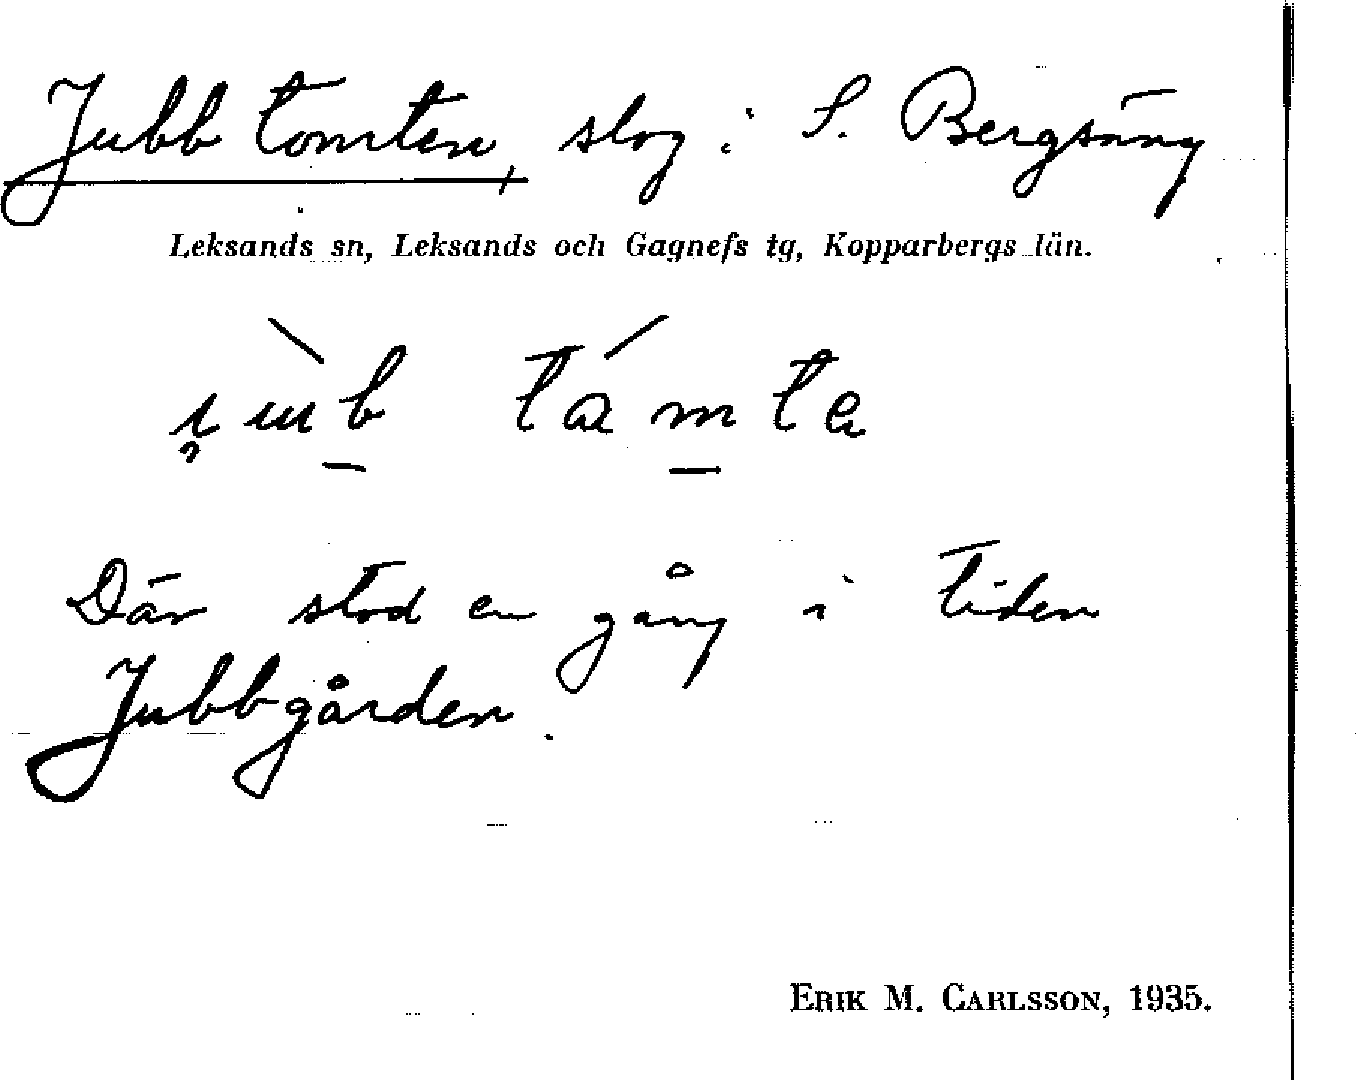 Jubbtomten, slog i S. Bergsäng
Leksands sn, Leksands och Gagnefs tg, Kopparbergs län.
Där stod en gång i tiden
Jubbgården.
ERIK M. CARLSSON, 1935.